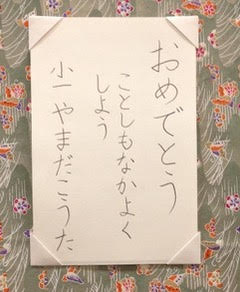 おめでとう
ことしもなかよく
しよう
小一やまだこうた